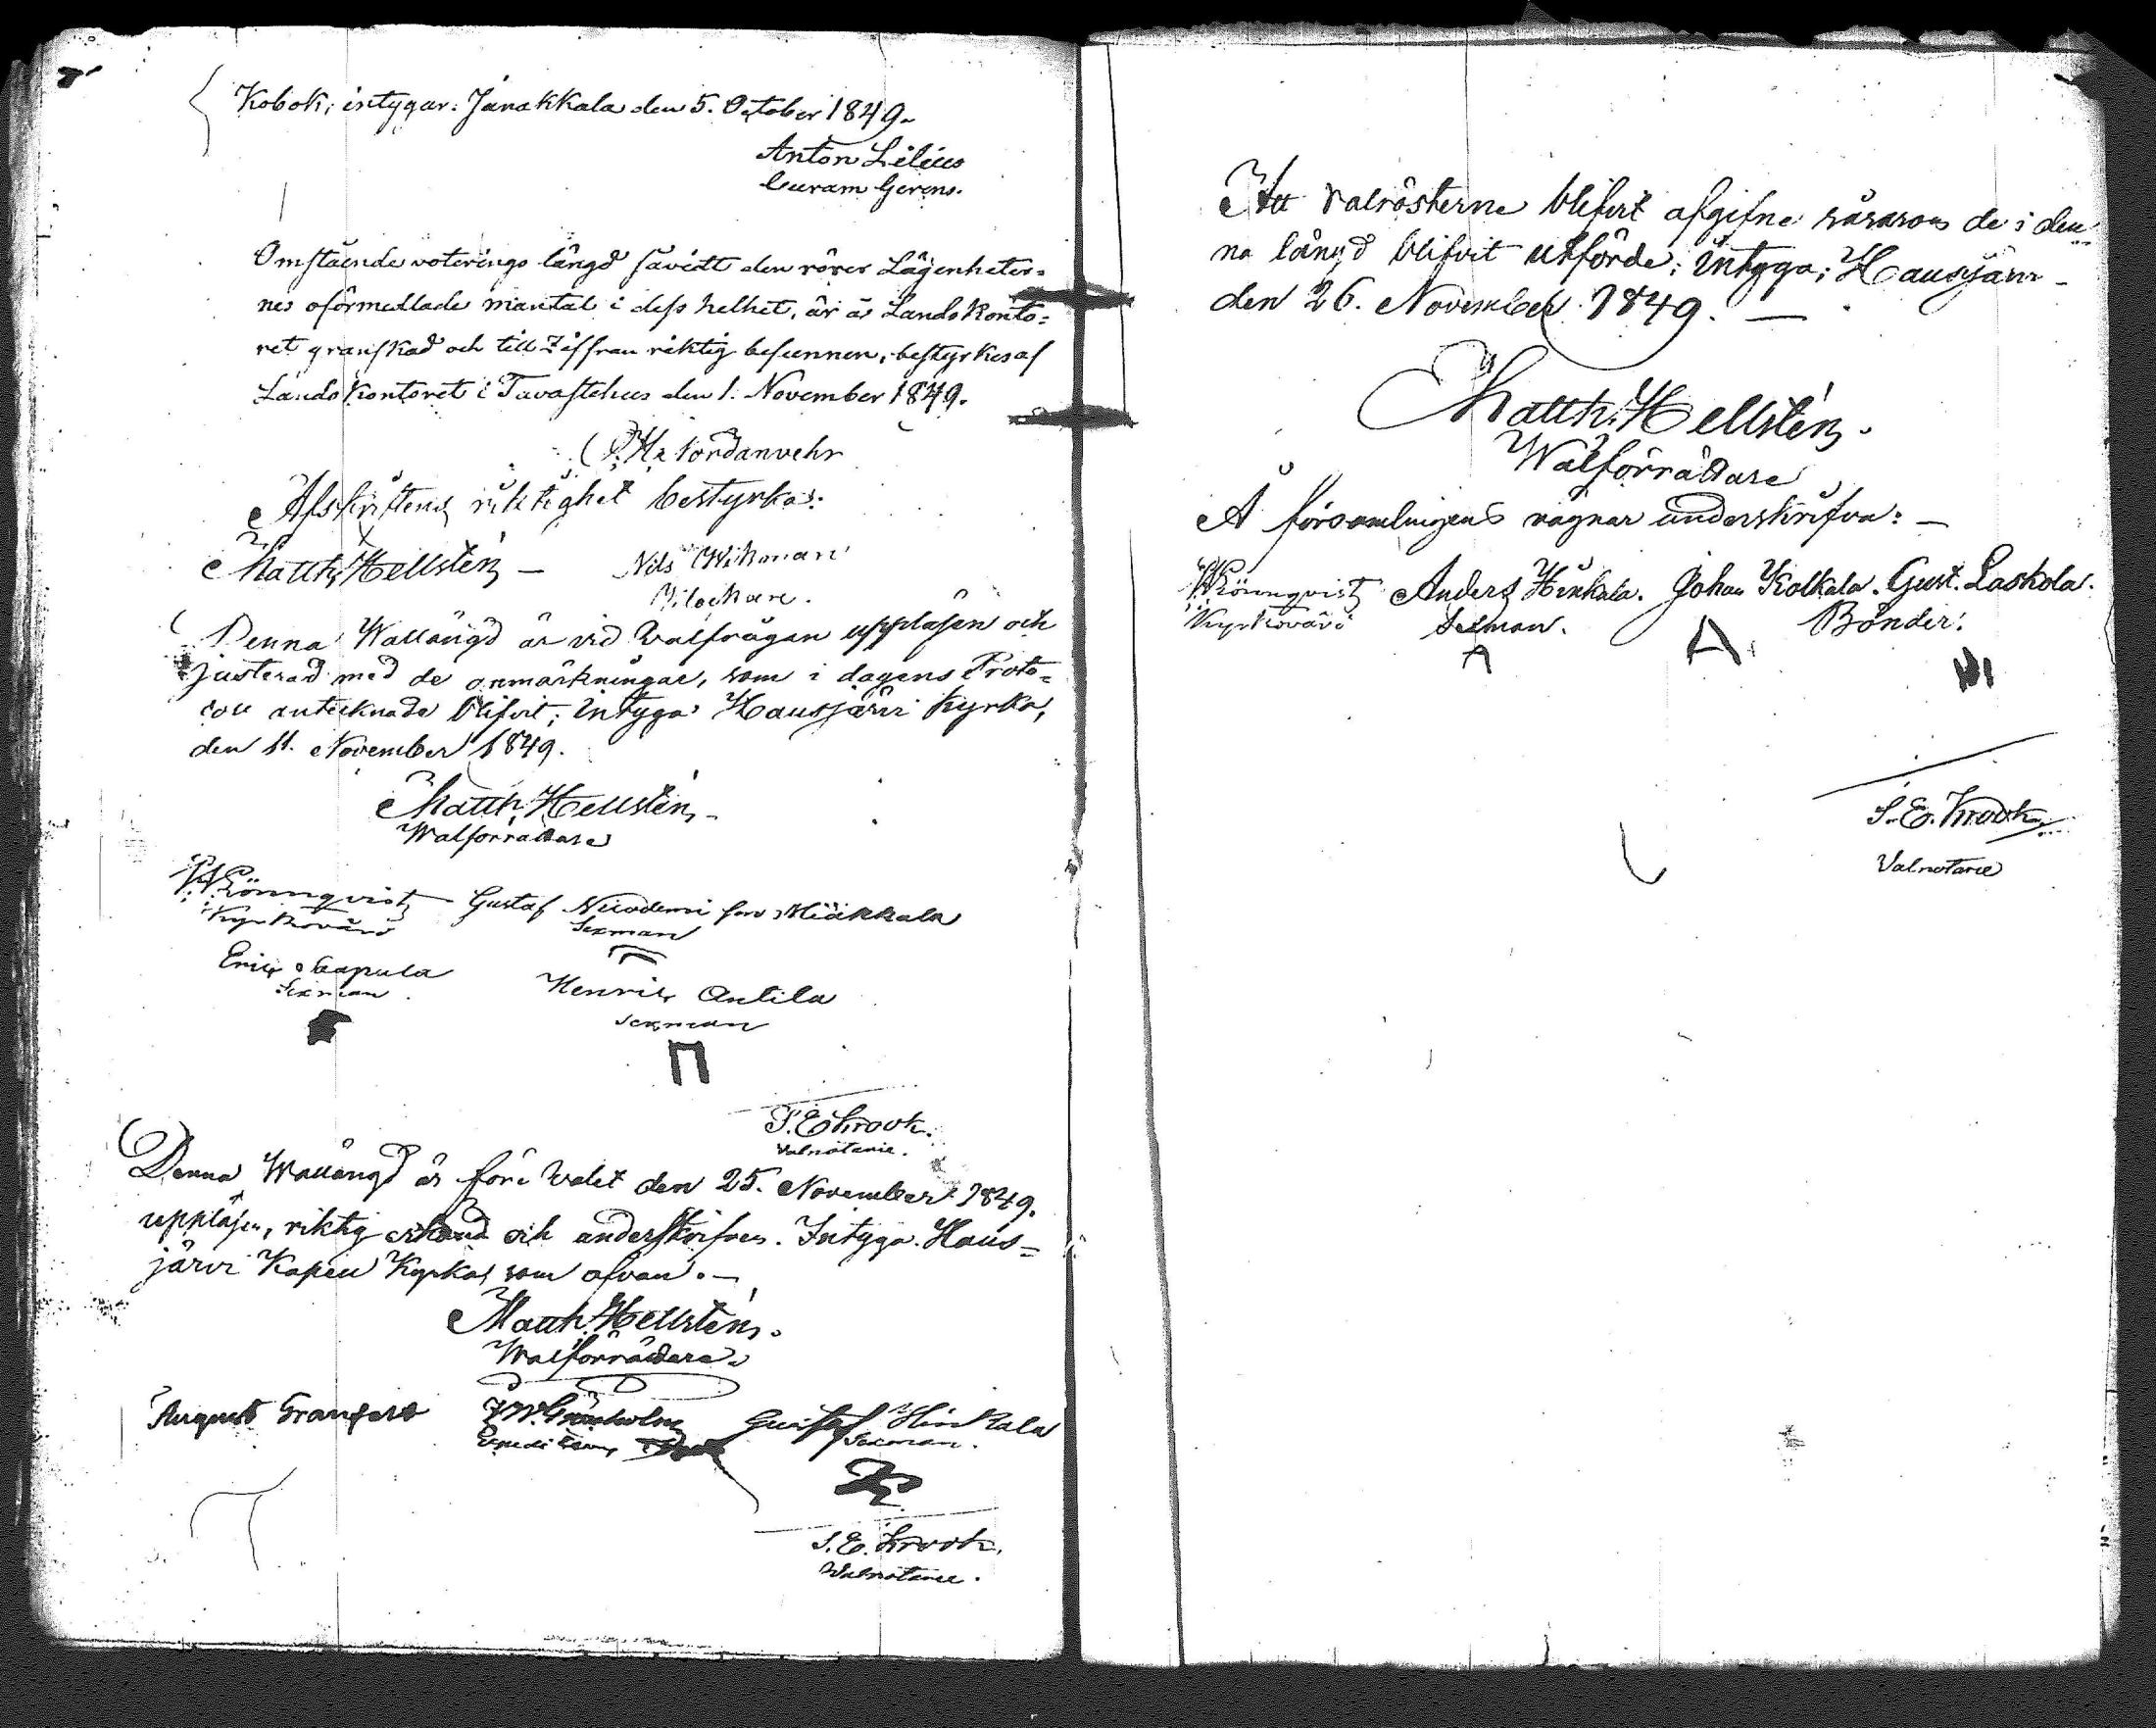 Kobok; intygar: Janakkala den 5. October 1849.
Anton Lilius
Curam Gerens.
Omstående voterings längd såvidt den rörer Lägenheter=
nes oförmedlade mantal i dess helhet, är å Lands konto=
ret granskad och till Ziffran riktig befunnen, bestyrkes af
Lands kontoret i Tavastehus den 1. November 1849.
Nordanvehr
Afskriftens riktighet bestyrka:
Matth. Hellstén —
Nils Wikman
Denna Vallängd är vid Valfrågan uppläsen och
justerad med de anmärkningar, som i dagens Proto=
coll antecknade blifvit; intyga Hausjärvi kyrka,
den 11. November 1849.
Matth. Hellstén
Walförrättare
Rönnqvist Gustaf Nicodemi son Miäkkala
Kyrkovärd Sexman
Eric Saapula Henric Antila
Sexman Sexman
S. E. Krook.
Valnotarie.
Denna Wallängd är före Valet den 25. November 1849.
uppläsen, riktig erkänd och underskrifven. Intyga. Haus=
järvi Kapell Kyrka, som ofvan. —
Matth. Hellstén.
Walförrättare.
August Granfelt Gustaf Hinkala
Sexman.
S. E. Krook.
Valnotarie.
Att valrösterne blifvit afgifne såsom de i den=
na längd blifvit utförde; intyga; Hausjärvi
den 26. November 1849. —
Matth. Hellstén.
Walförrättare
Å församlingens vägnar underskrifva: —
Rönnqvist Anders Hinkala. Johan Kolkala. Gust. Laskola.
Kyrkovärd Sexman. Bönder.
S. E. Krook
Valnotarie